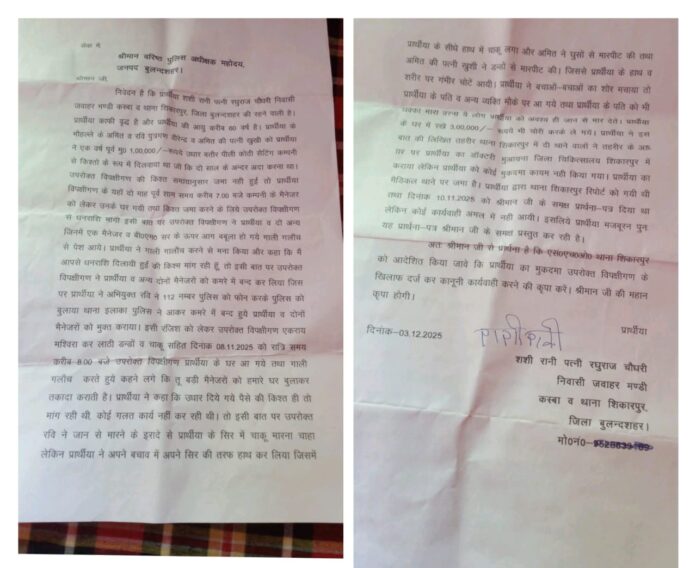 सेवा में
श्रीमान वरिष्ठ पुलिस अधीक्षक महोदय,
जनपद बुलन्दशहर।
श्रीमान जी,
निवेदन है कि प्रार्थीया शशी रानी पत्नी रघुराज चौधरी निवासी
जवाहर मण्डी कस्बा व थाना शिकारपुर, जिला बुलन्दशहर की रहने वाली है।
प्रार्थीया काफी वृद्ध है और प्रार्थीया की आयु करीब 60 वर्ष है। प्रार्थीया के
मौहल्ले के अमित व रवि पुत्रगण वीरेन्द्र व अमित की पत्नी खुशी को प्रार्थीया
ने एक वर्ष पूर्व मु0 1,00,000/–रूपये उधार बतौर पीली कोठी सेटिंग कम्पनी
से किश्तो के रूप में दिलवाया था जो कि दो साल के अन्दर अदा करना था।
उपरोक्त विपक्षीगण की किश्त समयानुसार जमा नही हुई तो प्रार्थीया
विपक्षीगण के यहां दो माह पूर्व शाम समय करीब 7.00 बजे कम्पनी के मैनेजर
को लेकर उनके घर गयी तथा किश्त जमा करने के लिये उपरोक्त विपक्षीगण
से धनराशि मांगी इसी बात पर उपरोक्त विपक्षीगण ने प्रार्थीया व दो अन्य
जिनमें एक मैनेजर व बी0एम0 सर के ऊपर आग बबूला हो गये गाली गलौच
से पेश आये। प्रार्थीया ने गाली गलौच करने से मना किया और कहा कि मैं
आपसे धनराशि दिलायी हुई की किश्म मांग रही हूँ, तो इसी बात पर उपरोक्त
विपक्षीगण ने प्रार्थीया व अन्य दोनों मैनेजरो को कमरे में बन्द कर लिया जिस
पर प्रार्थीया ने अभियुक्त रवि ने 112 नम्बर पुलिस को फोन करके पुलिस को
बुलाया थाना इलाका पुलिस ने आकर कमरे में बन्द हुये प्रार्थीया व दोनों
मैनेजरों को मुक्त कराया। इसी रंजिश को लेकर उपरोक्त विपक्षीगण एकराय
मश्विरा कर लाटी डन्डों व चाकू सहित दिनांक 08.11.2025 को रात्रि समय
करीब 8.00 बजे उपरोक्त विपक्षीगण प्रार्थीया के घर आ गये तथा गाली
गलौच करते हुये कहने लगे कि तू बडी मैनेजरों को हमारे घर बुलाकर
तकादा कराती है। प्रार्थीया ने कहा कि उधार दिये गये पैसे की किश्त ही तो
मांग रही थी, कोई गलत कार्य नहीं कर रही थी। तो इसी बात पर उपरोक्त
रवि ने जान से मारने के इरादे से प्रार्थीया के सिर में चाकू मारना चाहा
लेकिन प्रार्थीया ने अपने बचाव में अपने सिर की तरफ हाथ कर लिया जिसमें
प्रार्थीया के सीधे हाथ में चाकू लगा और अमित ने घुसों से मारपीट की तथा
अमित की पत्नी खुशी ने डन्डों से मारपीट की। जिससे प्रार्थीया के हाथ व
शरीर पर गंभीर चोटें आयी। प्रार्थीया ने बचाओं-बचाओं का शोर मचाया तो
प्रार्थीया के पति व अन्य व्यक्ति मौके पर आ गये तथा प्रार्थीया के पति को भी
धक्का मारा वरना ये लोग प्रार्थीया को अवश्य ही जान से मार देते। प्रार्थीया
के घर में रखे 3,00,000/– रूपये भी चोरी करके ले गये। प्रार्थीया ने इस
बात की लिखित तहरीर थाना शिकारपुर में दी थाने वालों ने तहरीर के आधार
पर प्रार्थीया का डॉक्टरी मुआयना जिला चिकित्सालय शिकारपुर में
कराया लेकिन प्रार्थीया को कोई मुकदमा कायम नही किया गया। प्रार्थीया का
मैडिकल थाने पर जमा है। प्रार्थीया द्वारा थाना शिकारपुर रिपोर्ट को गयी थी
तथा दिनांक 10.11.2025 को श्रीमान जी के समक्ष प्रार्थना-पत्र दिया था
लेकिन कोई कार्यवाही अमल में नही आयी। इसलिये प्रार्थीया मजबूरन पुनः
यह प्रार्थना-पत्र श्रीमान जी के समक्ष प्रस्तुत कर रही है।
अतः श्रीमान जी से प्रार्थना है कि एस0एच0ओ0 थाना शिकारपुर
को आदेशित किया जावे कि प्रार्थीया का मुकदमा उपरोक्त विपक्षीगण के
खिलाफ दर्ज कर कानूनी कार्यवाही करने की कृपा करें। श्रीमान जी की महान
कृपा होगी।
दिनांक-03.12.2025
प्रार्थीया
शशी रानी
शशी रानी पत्नी रघुराज चौधरी
निवासी जवाहर मण्डी
कस्बा व थाना शिकारपुर,
जिला बुलन्दशहर।
मो0नं0-